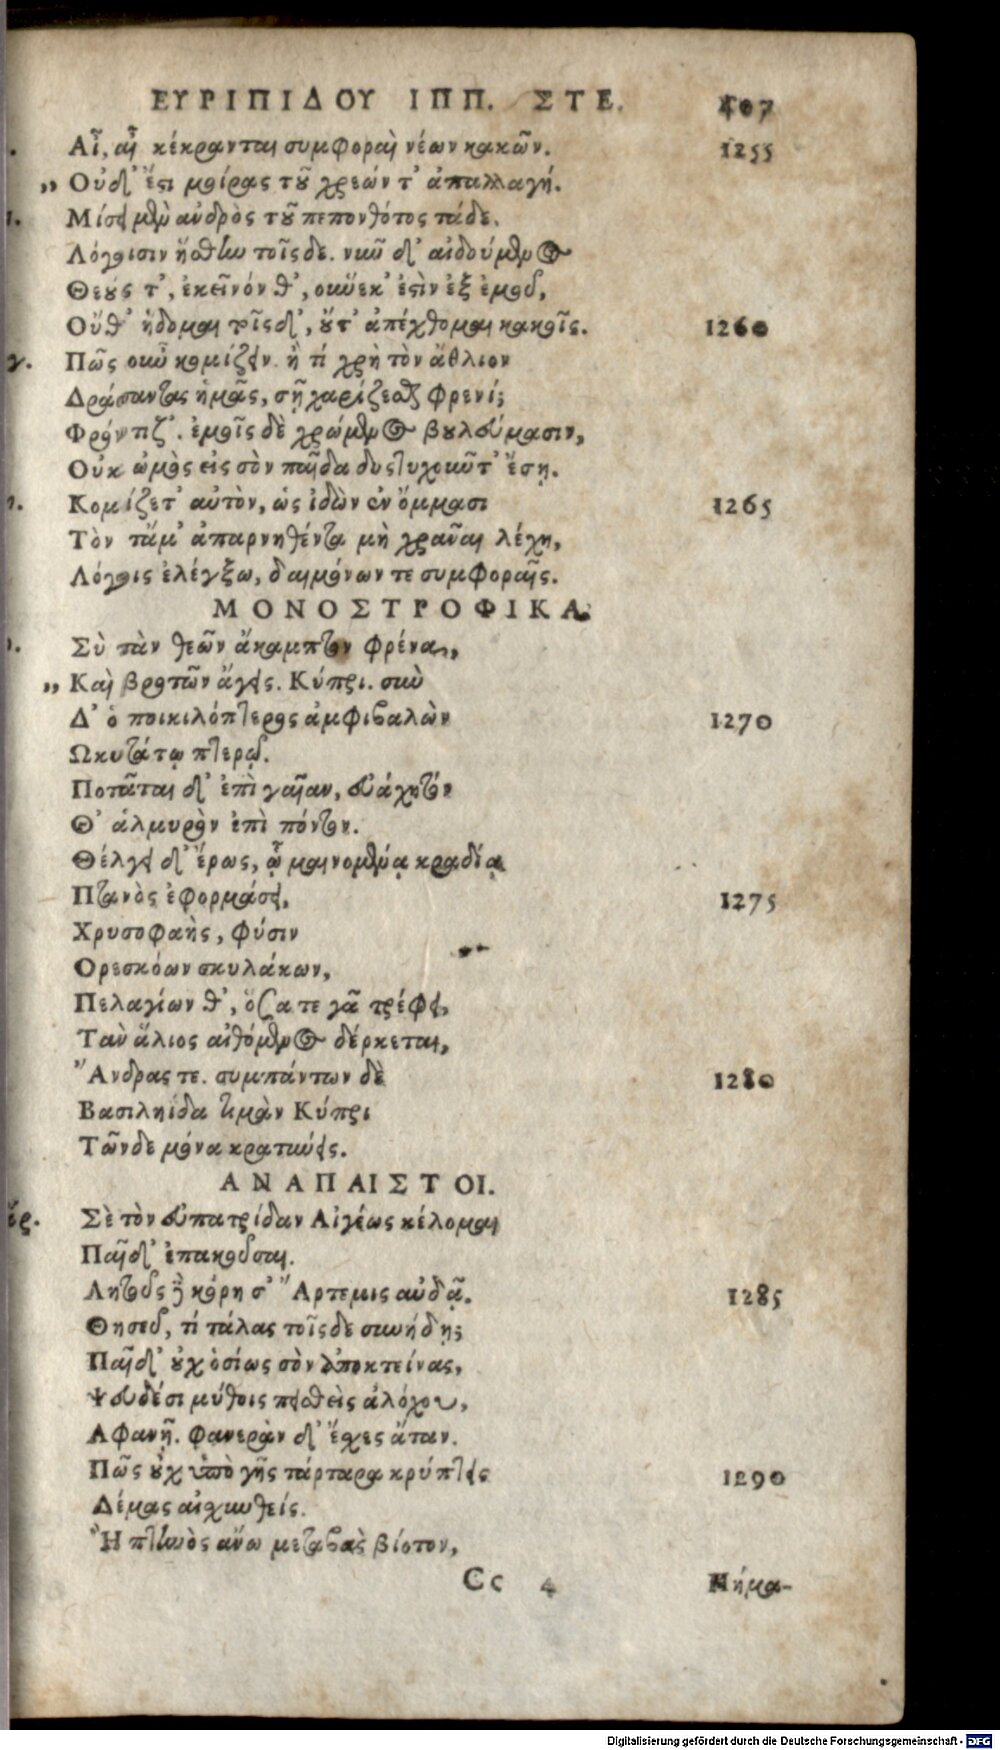 ΕΥΡΙΠΙΔΟΥ ΙΠΠ. ΣΤΕ. 407
Αἶ, αἶ κέκρανται συμφοραὶ νέων κακῶν. 1255
„ Οὐδ' ἔστι μοίρας τοῦ χρεών τ' ἀπαλλαγή.
Μίσει μὲν ἀνδρὸς τοῦ πεπονθότος τάδε,
Λόγοισιν ἥσθην τοῖσδε. νιῦ δ' αἰδούμενος
Θεούς τ', ἐκεῖνόν θ', οὕνεκ' ἐστὶν ἐξ ἐμοῦ,
Οὔθ' ἥδομαι τοῖσδ', οὔτ' ἀπέχθομαι κακοῖς. 1260
Πῶς οὖν κομίζειν. ἢ τί χρὴ τὸν ἄθλιον
Δράσαντας ἡμᾶς, σῇ χαρίζεσθαι φρενί;
Φρόντιζ'. ἐμοῖς δὲ χρώμενος βουλεύμασιν,
Οὐκ ὠμὸς εἰς σὸν παῖδα δυστυχοῦντ' ἔσῃ.
Κομίζετ' αὐτὸν, ὡς ἰδὼν ἐν ὄμμασι 1265
Τὸν τἄμ' ἀπαρνηθέντα μὴ χρᾶναι λέχη,
Λόγοις ἐλέγξω, δαιμόνων τε συμφοραῖς.
ΜΟΝΟΣΤΡΟΦΙΚΑ.
Σὺ τὰν θεῶν ἄκαμπτον φρένα,
„ Καὶ βροτῶν ἄγεις. Κύπρι. σιὼ
Δ' ὁ ποικιλόπτερος ἀμφιβαλὼν 1270
Ωκυτάτῳ πτερῷ.
Ποτᾶται δ' ἐπὶ γαῖαν, εὐάχητόν
Θ' ἁλμυρὸν ἐπὶ πόντον.
Θέλγει δ' ἔρως, ᾧ μαινομένᾳ κραδίᾳ
Πτανὸς ἐφορμάσει, 1275
Χρυσοφαὴς, φύσιν
Ορεσκόων σκυλάκων,
Πελαγίων θ', ὅσα τε γᾶ τρέφει,
Τὰν ἅλιος αἰθόμενος δέρκεται,
Ἄνδρας τε. συμπάντων δὲ 1280
Βασιληΐδα τιμὰν Κύπρι
Τῶνδε μόνα κρατύνεις.
ΑΝΑΠΑΙΣΤΟΙ.
Σὲ τὸν εὐπατρίδαν Αἰγέως κέλομαι
Παῖδ' ἐπακοῦσαι.
Λητοῦς δὲ κόρη σ' Ἄρτεμις αὐδᾷ. 1285
Θησεῦ, τί τάλας τοῖσδε συνήδῃ;
Παῖδ' οὐχ ὁσίως σὸν ἀποκτείνας,
Ψευδέσι μύθοις πεισθεὶς ἀλόχου,
Αφανῆ. φανερὰν δ' ἔχεις ἄταν.
Πῶς οὐχ ὑπὸ γῆς τάρταρα κρύπτεις 1290
Δέμας αἰσχυνθείς.
Ἢ πτηνὸς ἄνω μεταβὰς βίοτον,
Cc 4 Πήμα-
Digitalisierung gefördert durch die Deutsche Forschungsgemeinschaft - DFG